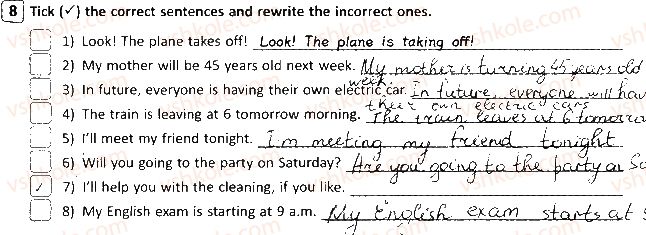 8 Tick (✓) the correct sentences and rewrite the incorrect ones.
1) Look! The plane takes off! Look! The plane is taking off!
2) My mother will be 45 years old next week. My mother is turning 45 years old
week.
3) In future, everyone is having their own electric car. In future, everyone will hav
their own electric cars
4) The train is leaving at 6 tomorrow morning. The train leaves at 6 tomorro
5) I'll meet my friend tonight. I'm meeting my friend tonight
6) Will you going to the party on Saturday? Are you going to the party on Sa
✓ 7) I'll help you with the cleaning, if you like.
8) My English exam is starting at 9 a.m. My English exam starts at